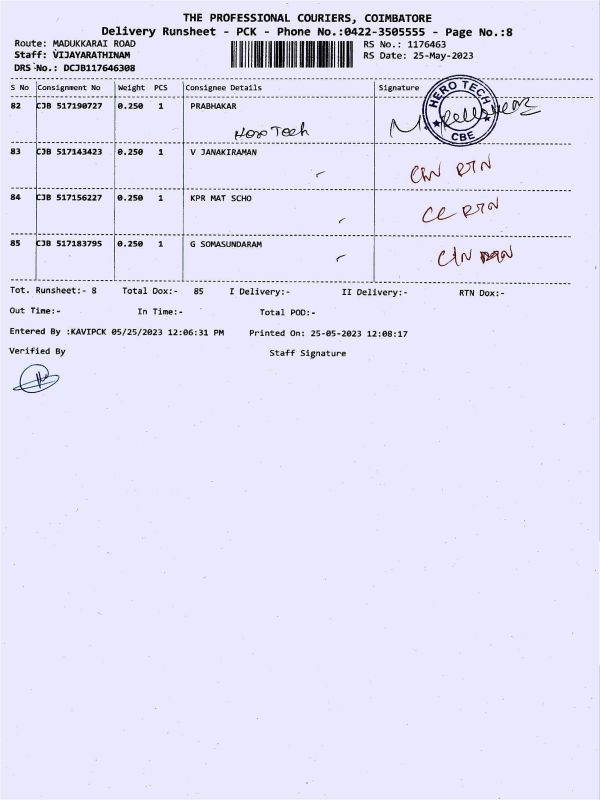 THE PROFESSIONAL COURIERS, COIMBATORE
Delivery Runsheet - PCK - Phone No.:0422-3505555 - Page No.:8
Route: MADUKKARAI ROAD RS No.: 1176463
Staff: VIJAYARATHINAM RS Date: 25-May-2023
DRS No.: DCJB117646308
S No Consignment No Weight PCS Consignee Details Signature
82 CJB 517190727 0.250 1 PRABHAKAR
Hero Tech
HERO TECH
CBE
83 CJB 517143423 0.250 1 V JANAKIRAMAN
RTN
84 CJB 517156227 0.250 1 KPR MAT SCHO
RTN
85 CJB 517183795 0.250 1 G SOMASUNDARAM
Tot. Runsheet:- 8 Total Dox:- 85 I Delivery:- II Delivery:- RTN Dox:-
Out Time:- In Time:- Total POD:-
Entered By :KAVIPCK 05/25/2023 12:06:31 PM Printed On: 25-05-2023 12:08:17
Verified By Staff Signature